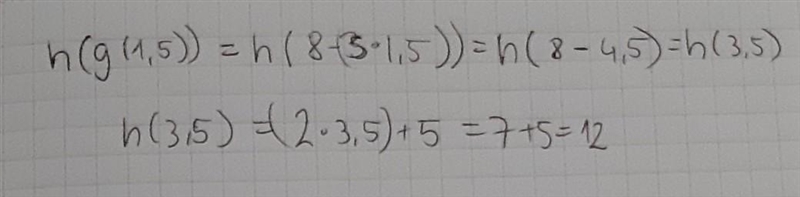 h(g(1,5)) = h(8-(3·1,5)) = h(8-4,5) = h(3,5)
h(3,5) = (2·3,5)+5 = 7+5 = 12